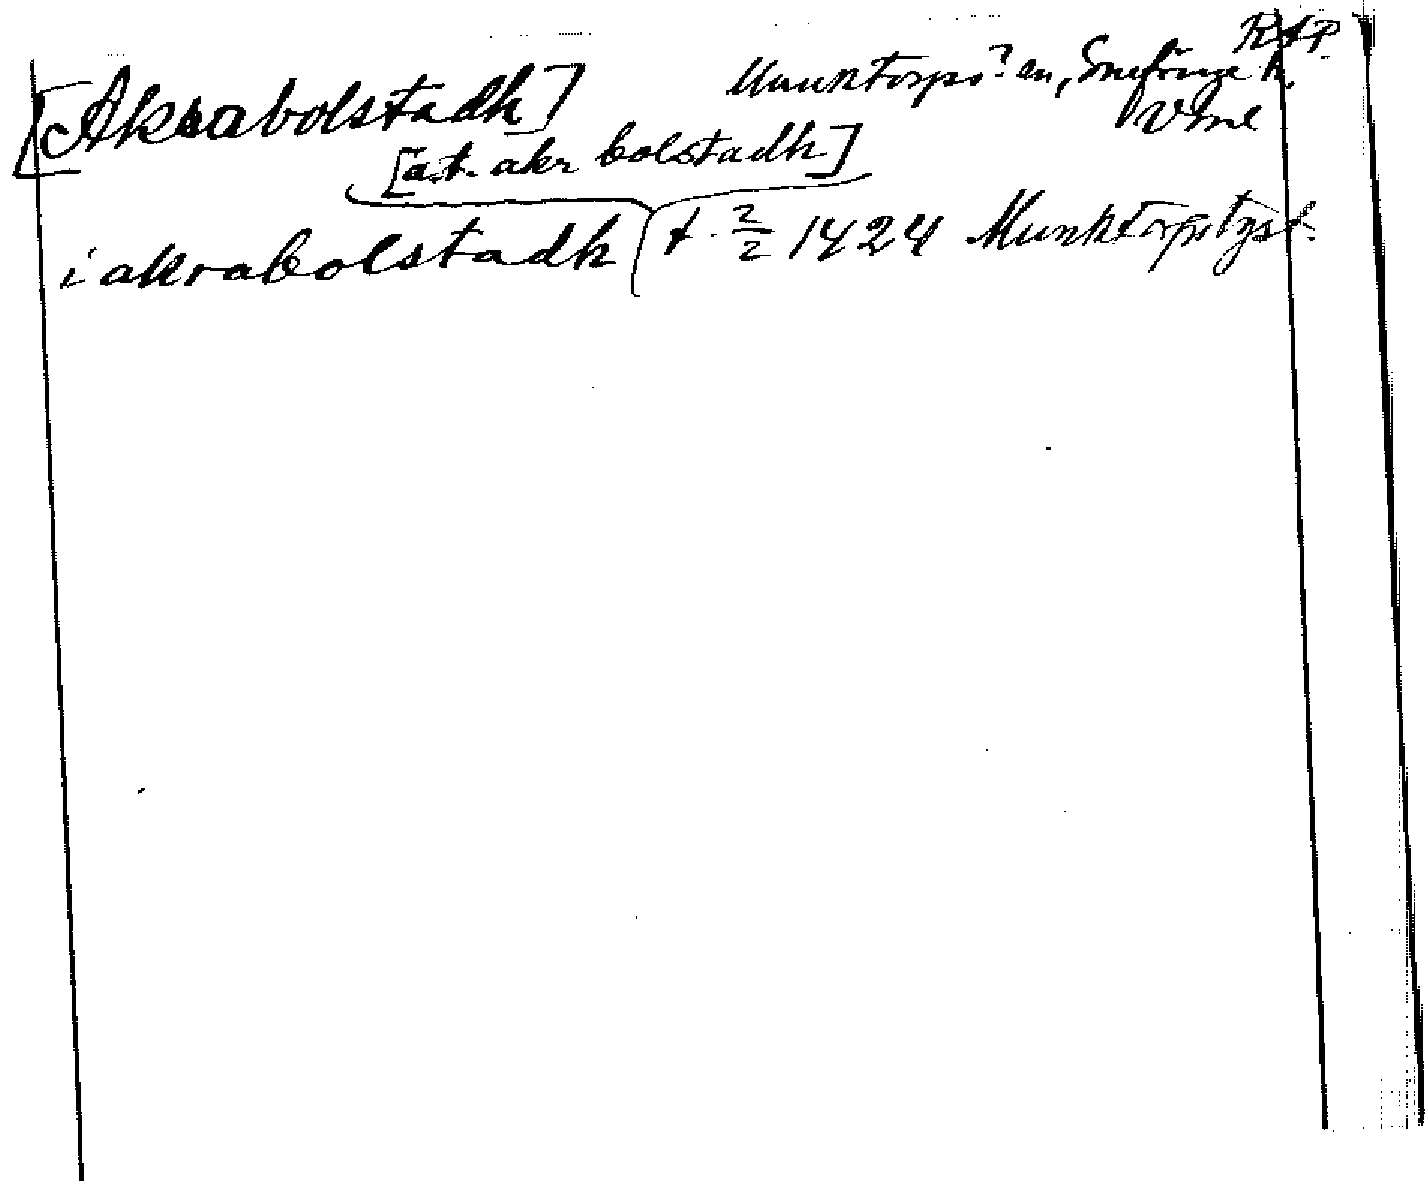 [Akrabolstadh]
Munktorps? sn, Snefringe h.
Vsml
[a.k. akr bolstadh]
i akrabolstadh t. 2/2 1424 Munktorpstyst.